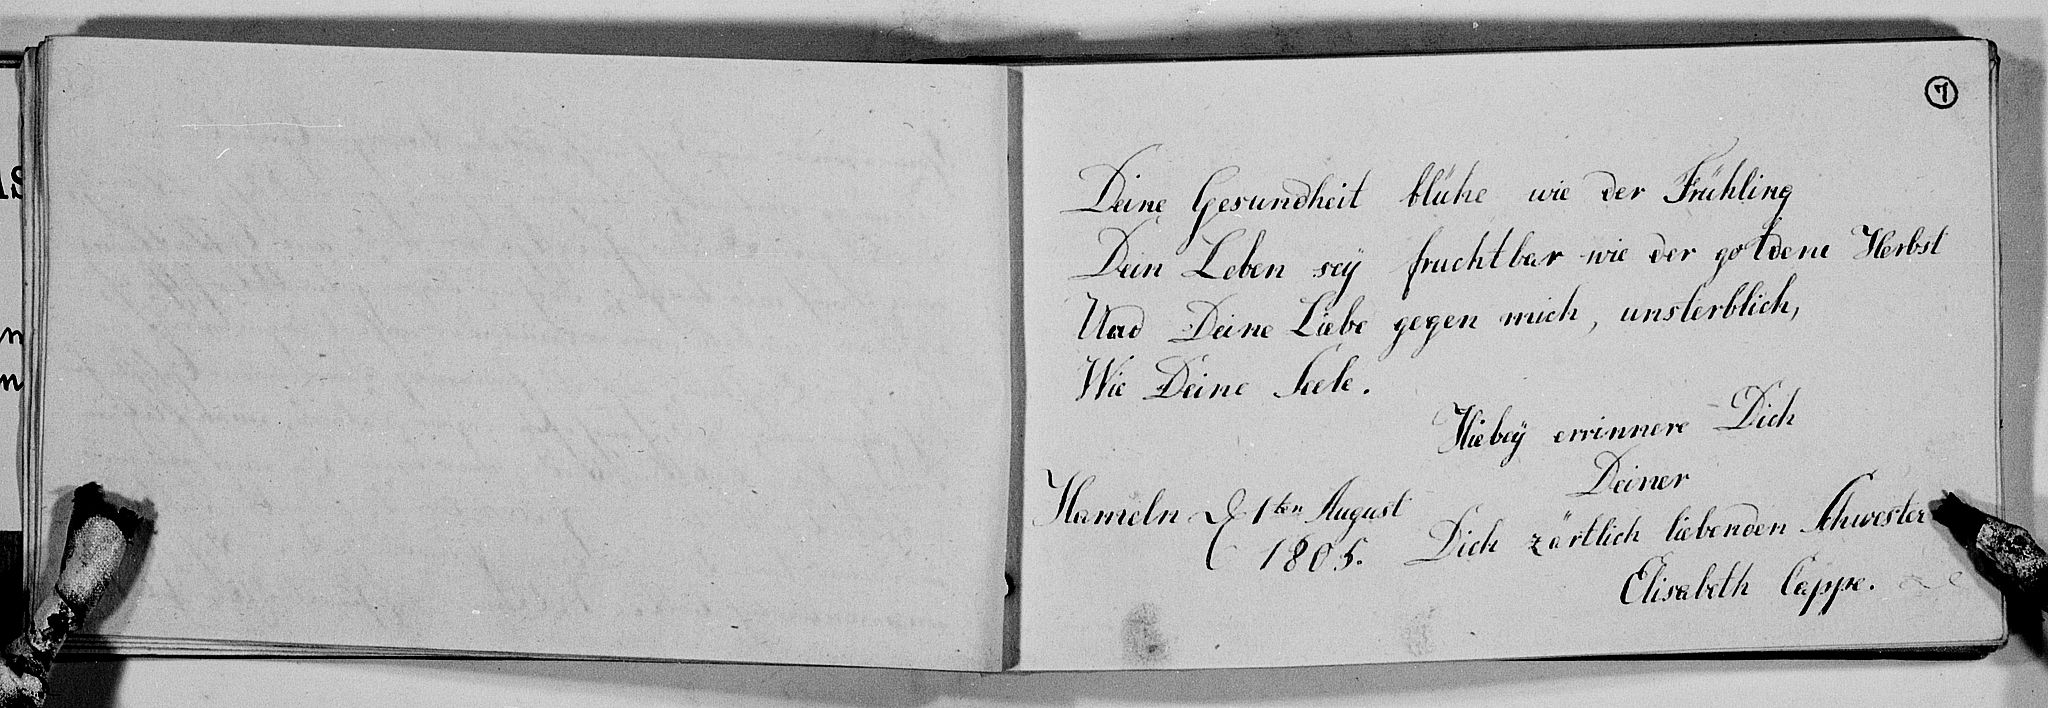 7
Deine Gesundheit blühe wie der Frühling
Dein Leben seÿ fruchtbar wie der goldene Herbst
Und Deine Liebe gegen mich, unsterblich,
Wie Deine Seele.
Hiebeÿ errinnere Dich
Deiner
Dich zärtlich liebenden Schwester
Elisabeth Cappe.
Hameln d 1ten August
1805.